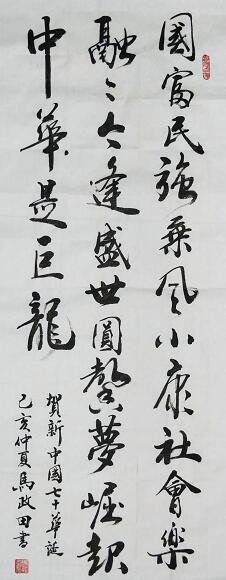 國富民強乘風小康社會樂
融〻今逢盛世圓馨夢崛起
中華是巨龍
賀新中國七十華誕
己亥仲夏馬政田書